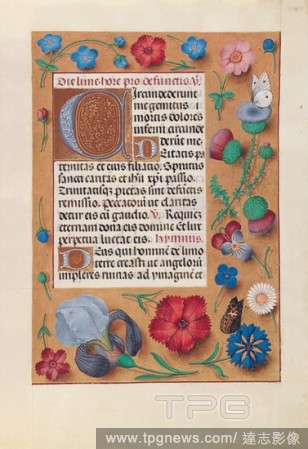 Die lune hore pro defunctis. V.
Circundederunt
me gemitus
mortis dolores
inferni circunde
derunt me
Eitatis pa
ternitas et eius filiatio. Spiritus
sancti caritas et xpi passio.
Trinitatisque pietas sint defunctis
remissio. Peccatorum
detur eis cum gaudio. V. Requiem
eternam dona eis domine et lux
perpetua luceat eis. Hymnus.
Deus qui hominem de limo
terre creasti ut angelorum
impleres ruinas ad ymaginem et
TPG
www.tpgnews.com/達志影像